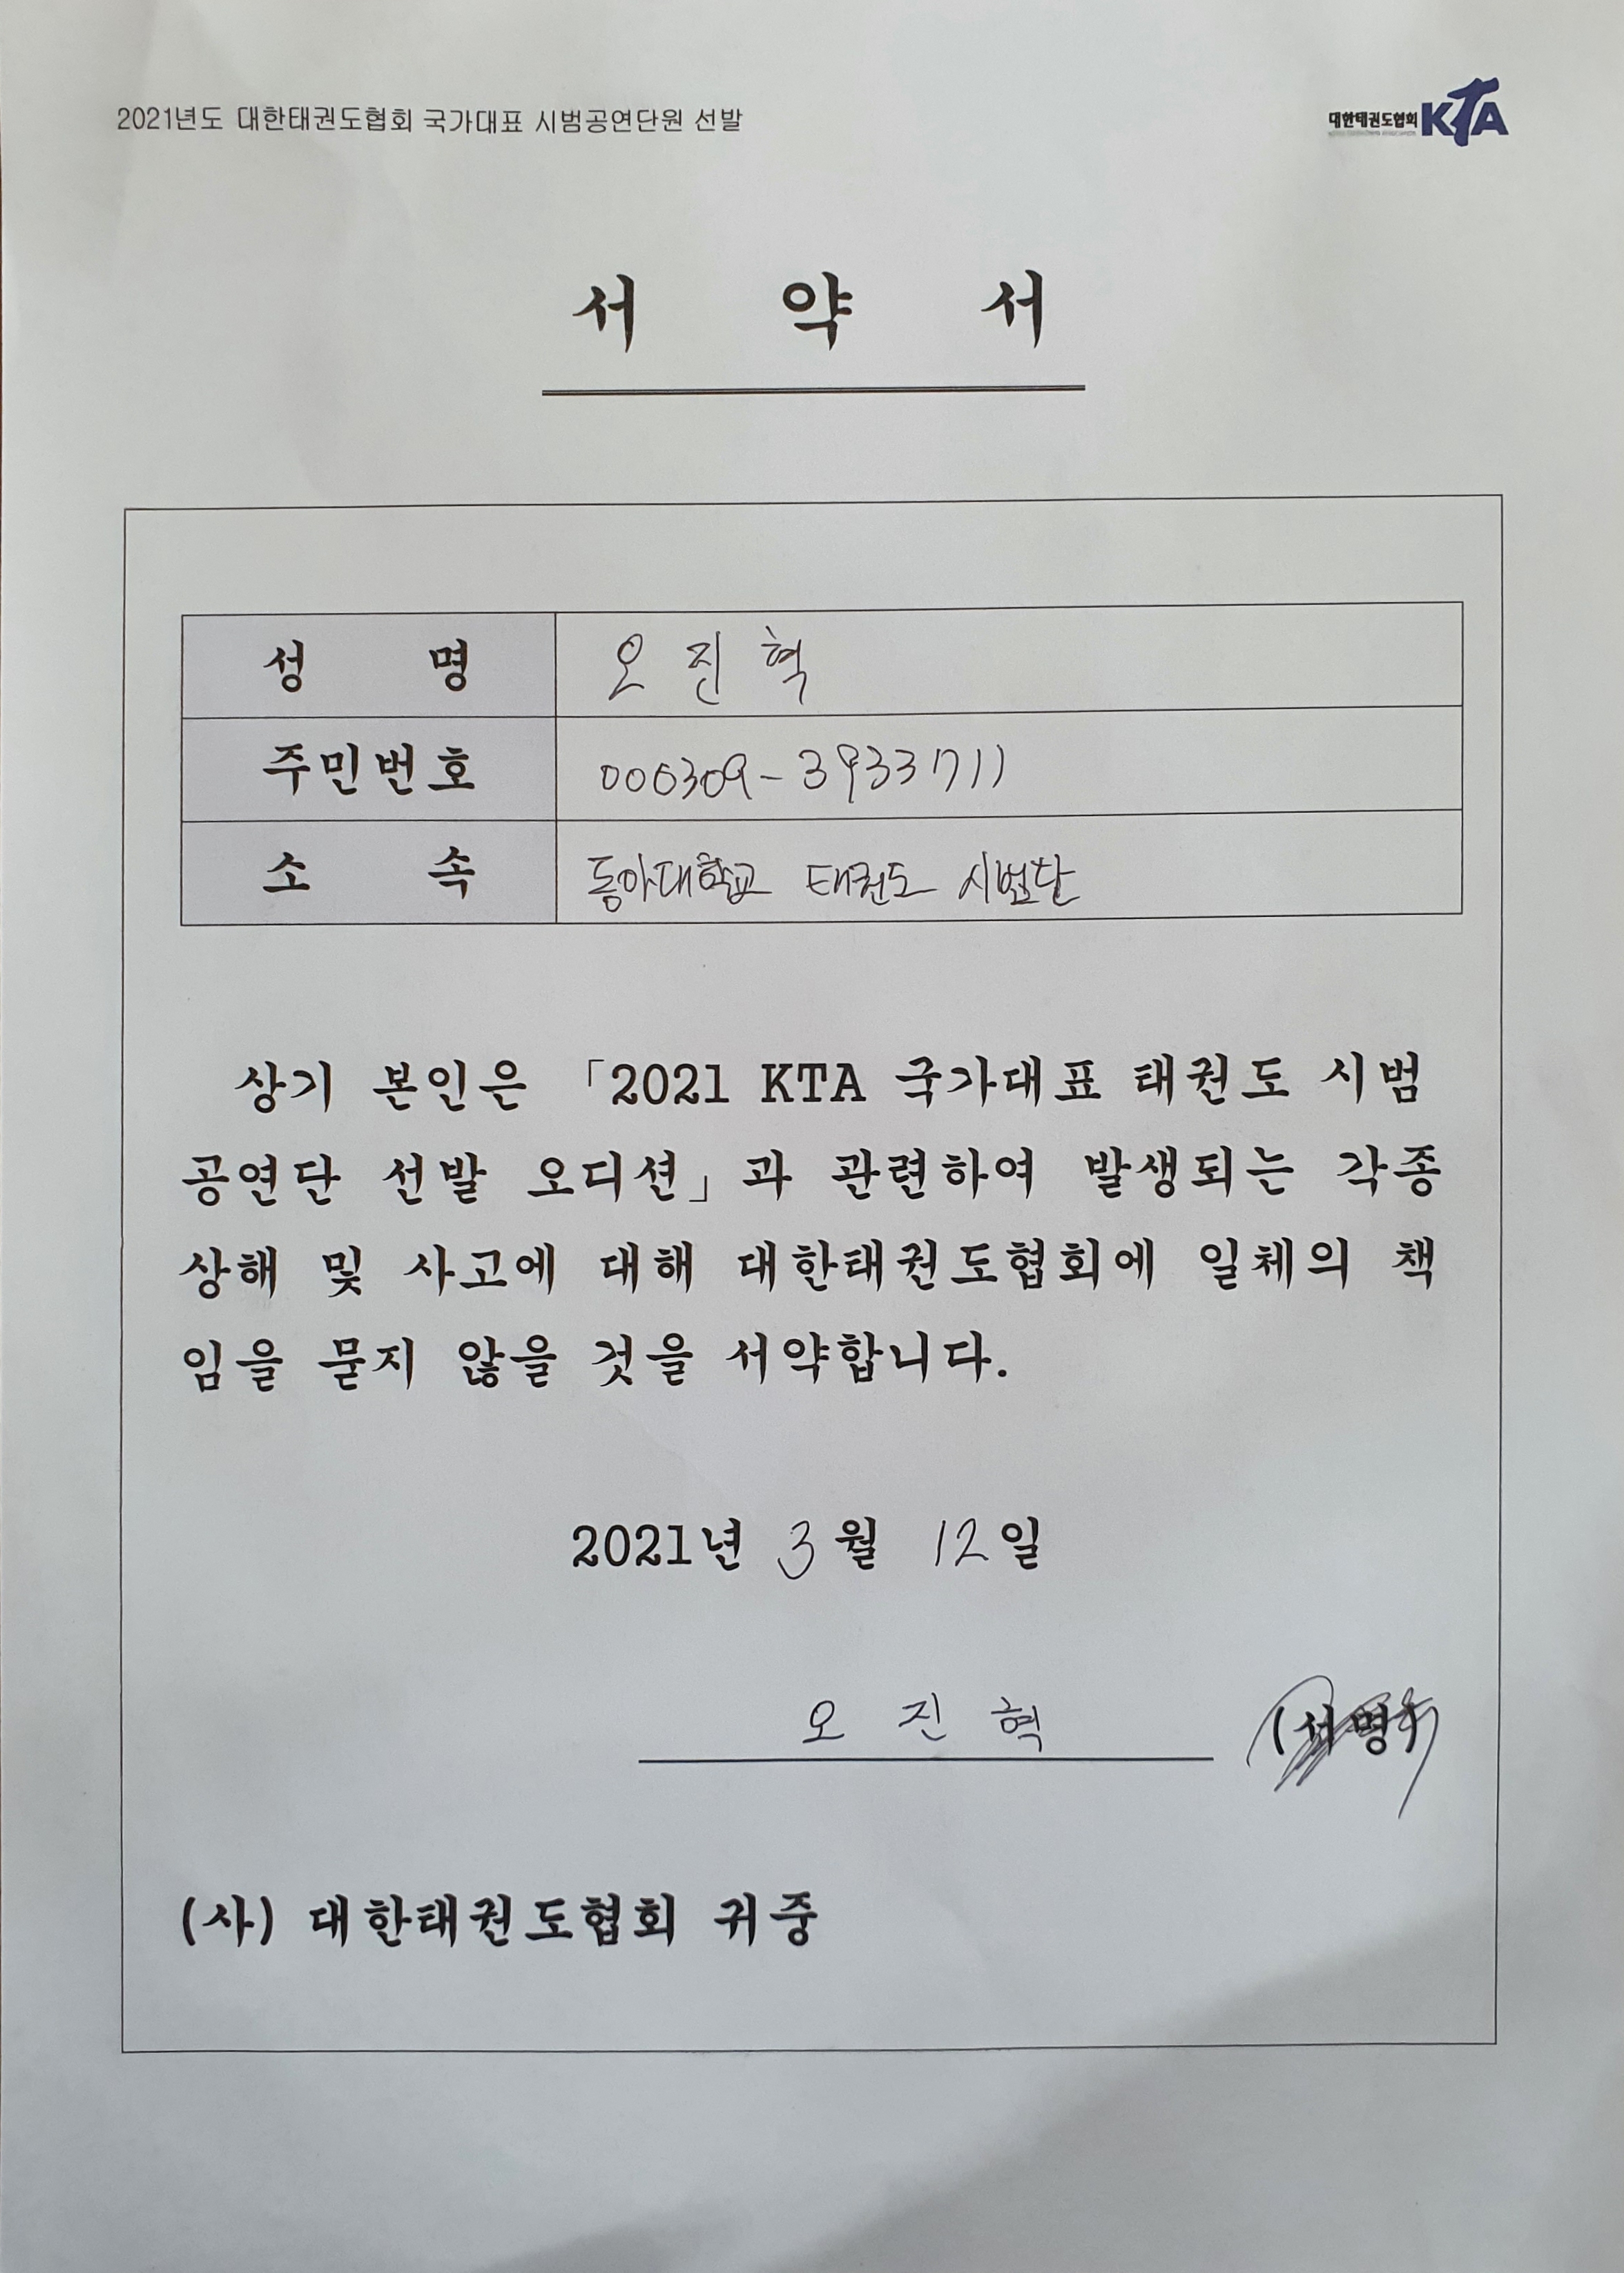 2021년도 대한태권도협회 국가대표 시범공연단원 선발
대한태권도협회 KTA
서 약 서
성 명 오 진 혁
주민번호 000309-3933711
소 속 동아대학교 태권도 시범단
상기 본인은 「2021 KTA 국가대표 태권도 시범
공연단 선발 오디션」과 관련하여 발생되는 각종
상해 및 사고에 대해 대한태권도협회에 일체의 책
임을 묻지 않을 것을 서약합니다.
2021년 3월 12일
오 진 혁 (서명)
(사) 대한태권도협회 귀중